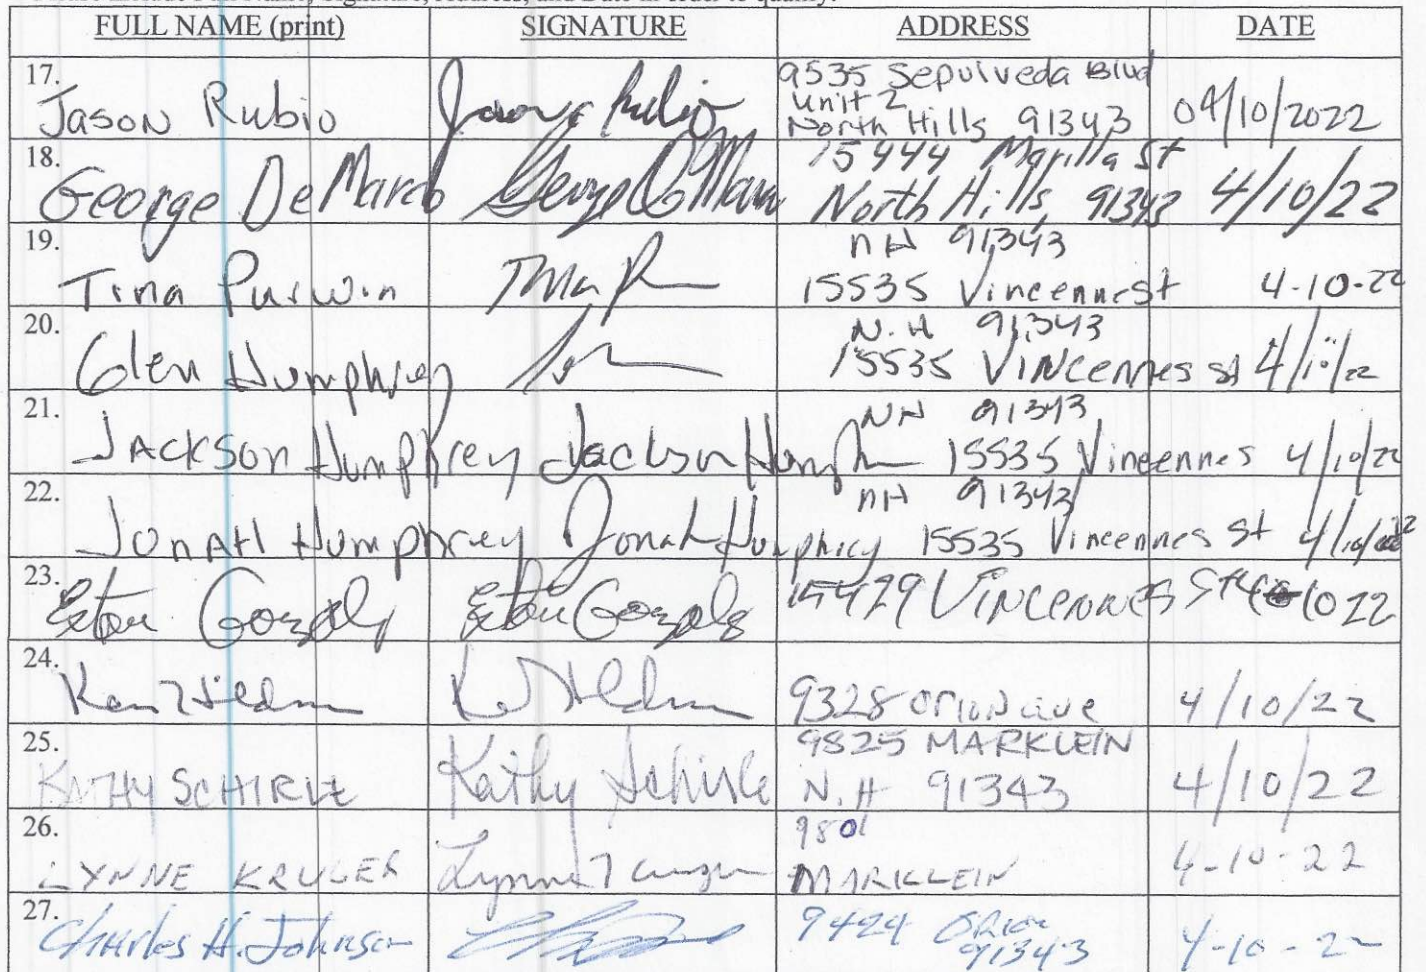 FULL NAME (print) SIGNATURE ADDRESS DATE
17. Jason Rubio Jason Rubio 9535 Sepulveda Blvd
unit 2
North Hills 91343 04/10/2022
18. George DeMarco George DeMarco 15444 Marilla St
North Hills, 91343 4/10/22
19. nH 91343
Tina Purwin Tina P 15535 Vincennes st 4-10-22
20. N.H 91343
Glen Humphrey 15535 Vincennes st 4/10/22
21. NH 91343
Jackson Humphrey Jackson Humph 15535 Vincennes 4/10/22
22. nH 91343
Jonah Humphrey Jonah Humphrey 15535 Vincennes St 4/10/22
23. Gonzalz Gonzalz 15429 Vincennes St 4 10 22
24. Ken Hildman 9328 Orion ave 4/10/22
25. 9825 MARKLEIN
KATHY SCHIRLE Kathy Schirle N.H 91343 4/10/22
26. 9801
LYNNE KRUGER Lynne Kruger MARKLEIN 4-10-22
27. Charles H. Johnson 9424 Orion
91343 4-10-22